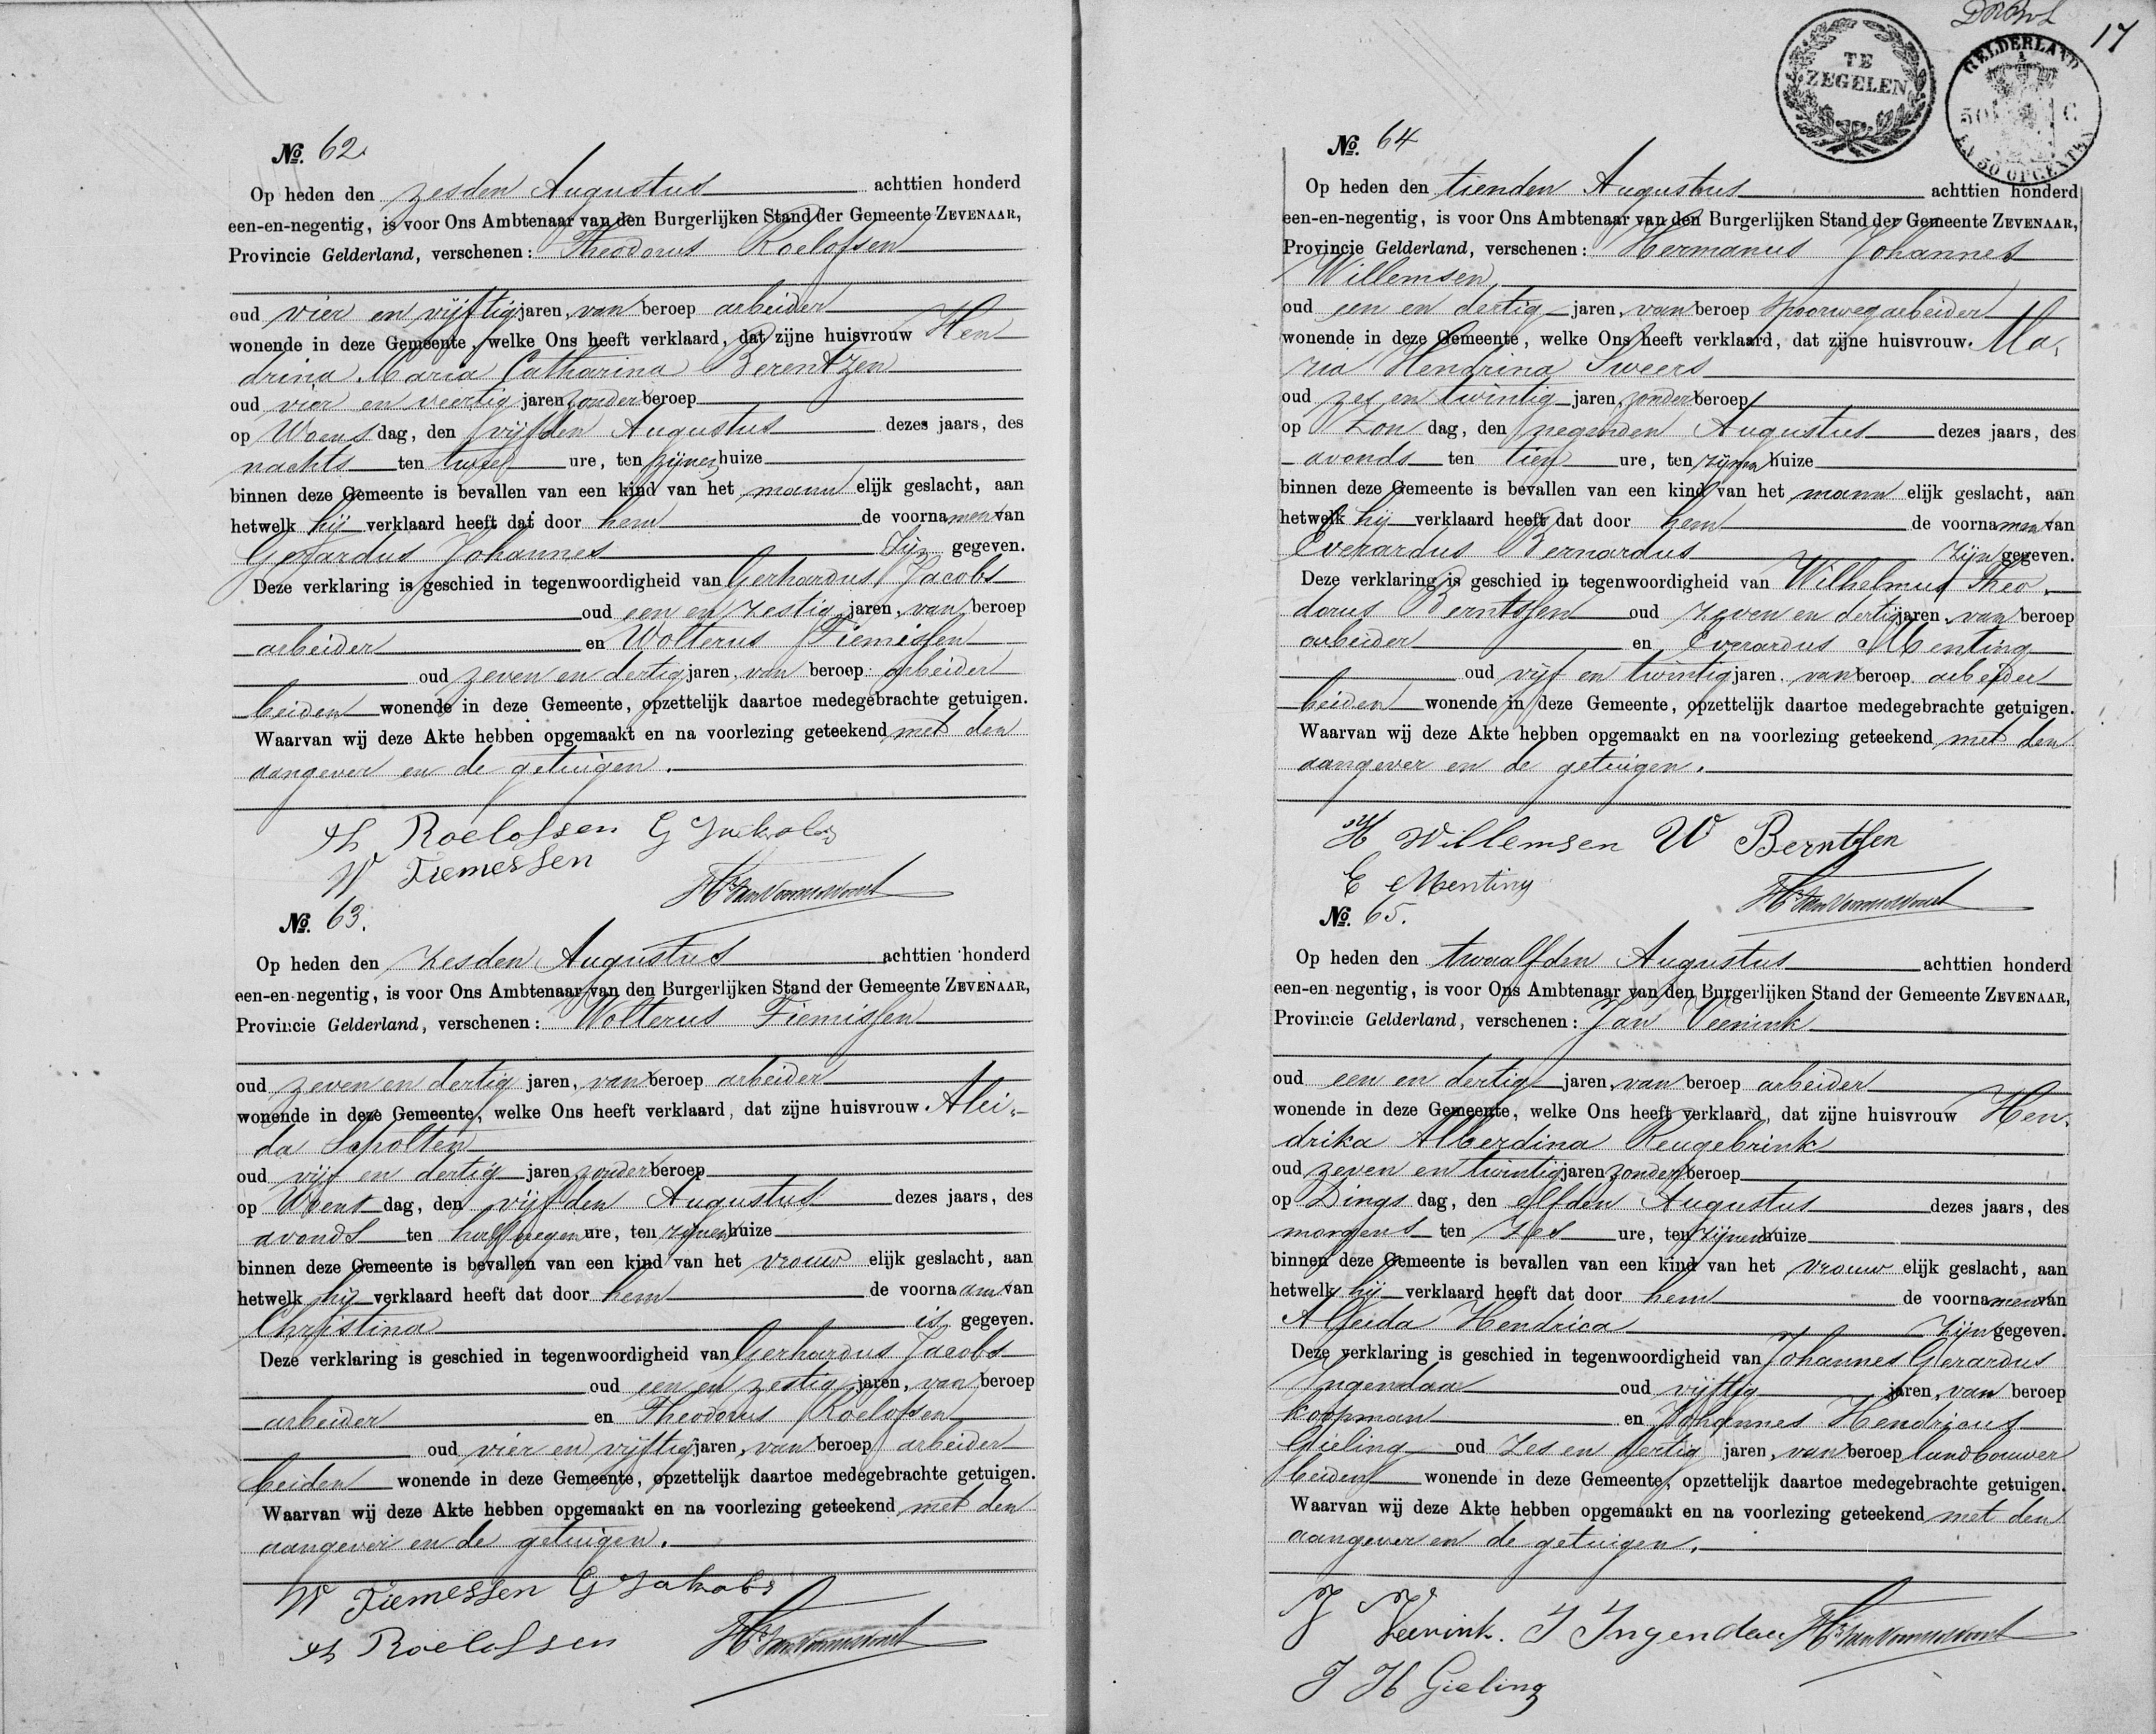 No. 62.
Op heden den zesden Augustus achttien honderd
een-en-negentig, is voor Ons Ambtenaar van den Burgerlijken Stand der Gemeente ZEVENAAR,
Provincie Gelderland, verschenen: Theodorus Roelofsen
oud vier en vijftig jaren, van beroep arbeider
wonende in deze Gemeente, welke Ons heeft verklaard, dat zijne huisvrouw Hen
drina Maria Catharina Berentzen
oud vier en veertig jaren zonder beroep
op Woensdag, den vijfden Augustus dezes jaars, des
nachts ten twee ure, ten zijnen huize
binnen deze Gemeente is bevallen van een kind van het mannelijk geslacht, aan
hetwelk hij verklaard heeft dat door hem de voornamen van
Gerardus Johannes zijn gegeven.
Deze verklaring is geschied in tegenwoordigheid van Gerhardus Jacobs
oud een en zestig jaren, van beroep
arbeider en Wolterus Tiemissen
oud zeven en dertig jaren, van beroep arbeider
beiden wonende in deze Gemeente, opzettelijk daartoe medegebrachte getuigen.
Waarvan wij deze Akte hebben opgemaakt en na voorlezing geteekend met den
aangever en de getuigen.
Th Roelofsen G Jakobs
W Tiemessen
No. 63.
Op heden den zesden Augustus achttien honderd
een-en-negentig, is voor Ons Ambtenaar van den Burgerlijken Stand der Gemeente ZEVENAAR,
Provincie Gelderland, verschenen: Wolterus Tiemissen
oud zeven en dertig jaren, van beroep arbeider
wonende in deze Gemeente, welke Ons heeft verklaard, dat zijne huisvrouw Alei-
da Scholten
oud vijf en dertig jaren zonder beroep
op Woensdag, den vijfden Augustus dezes jaars, des
avonds ten half negen ure, ten zijnen huize
binnen deze Gemeente is bevallen van een kind van het vrouwelijk geslacht, aan
hetwelk hij verklaard heeft dat door hem de voornaam van
Christina is gegeven.
Deze verklaring is geschied in tegenwoordigheid van Gerhardus Jacobs
oud een en zestig jaren, van beroep
arbeider en Theodorus Roelofsen
oud vier en vijftig jaren, van beroep arbeider
beiden wonende in deze Gemeente, opzettelijk daartoe medegebrachte getuigen.
Waarvan wij deze Akte hebben opgemaakt en na voorlezing geteekend met den
aangever en de getuigen.
W Tiemessen G Jakobs
Th Roelofsen
17
TE
ZEGELEN
GELDERLAND
50 C
EN 50 OPCENTEN
No. 64
Op heden den tienden Augustus achttien honderd
een-en-negentig, is voor Ons Ambtenaar van den Burgerlijken Stand der Gemeente ZEVENAAR,
Provincie Gelderland, verschenen: Hermanus Johannes
Willemsen
oud een en dertig jaren, van beroep spoorwegarbeider
wonende in deze Gemeente, welke Ons heeft verklaard, dat zijne huisvrouw Ma-
ria Hendrina Sweers
oud zes en twintig jaren, zonder beroep
op Zondag, den negenden Augustus dezes jaars, des
avonds ten tien ure, ten zijnen huize
binnen deze Gemeente is bevallen van een kind van het mannelijk geslacht, aan
hetwelk hij verklaard heeft dat door hem de voornamen van
Everardus Bernardus zijn gegeven.
Deze verklaring is geschied in tegenwoordigheid van Wilhelmus Theo-
dorus Berntssen oud zeven en dertig jaren, van beroep
arbeider en Everardus Menting
oud vijf en twintig jaren, van beroep arbeider
beiden wonende in deze Gemeente, opzettelijk daartoe medegebrachte getuigen.
Waarvan wij deze Akte hebben opgemaakt en na voorlezing geteekend met den
aangever en de getuigen.
H Willemsen W Berntsen
E Menting
No. 65.
Op heden den twaalfden Augustus achttien honderd
een-en negentig, is voor Ons Ambtenaar van den Burgerlijken Stand der Gemeente ZEVENAAR,
Provincie Gelderland, verschenen: Jan Veenink
oud een en dertig jaren, van beroep arbeider
wonende in deze Gemeente, welke Ons heeft verklaard, dat zijne huisvrouw Hen-
drika Alberdina Reugebrink
oud zeven en twintig jaren zonder beroep
op Dingsdag, den elfden Augustus dezes jaars, des
morgens ten zes ure, ten zijnen huize
binnen deze Gemeente is bevallen van een kind van het vrouwelijk geslacht, aan
hetwelk hij verklaard heeft dat door hem de voornamen van
Aleida Hendrica zijn gegeven.
Deze verklaring is geschied in tegenwoordigheid van Johannes Gerardus
Ingendaa oud vijftig jaren, van beroep
koopman en Johannes Hendricus
Gieling oud zes en dertig jaren, van beroep landbouwer
beiden wonende in deze Gemeente, opzettelijk daartoe medegebrachte getuigen.
Waarvan wij deze Akte hebben opgemaakt en na voorlezing geteekend met den
aangever en de getuigen.
J Veenink. J Ingendau
J H Gieling